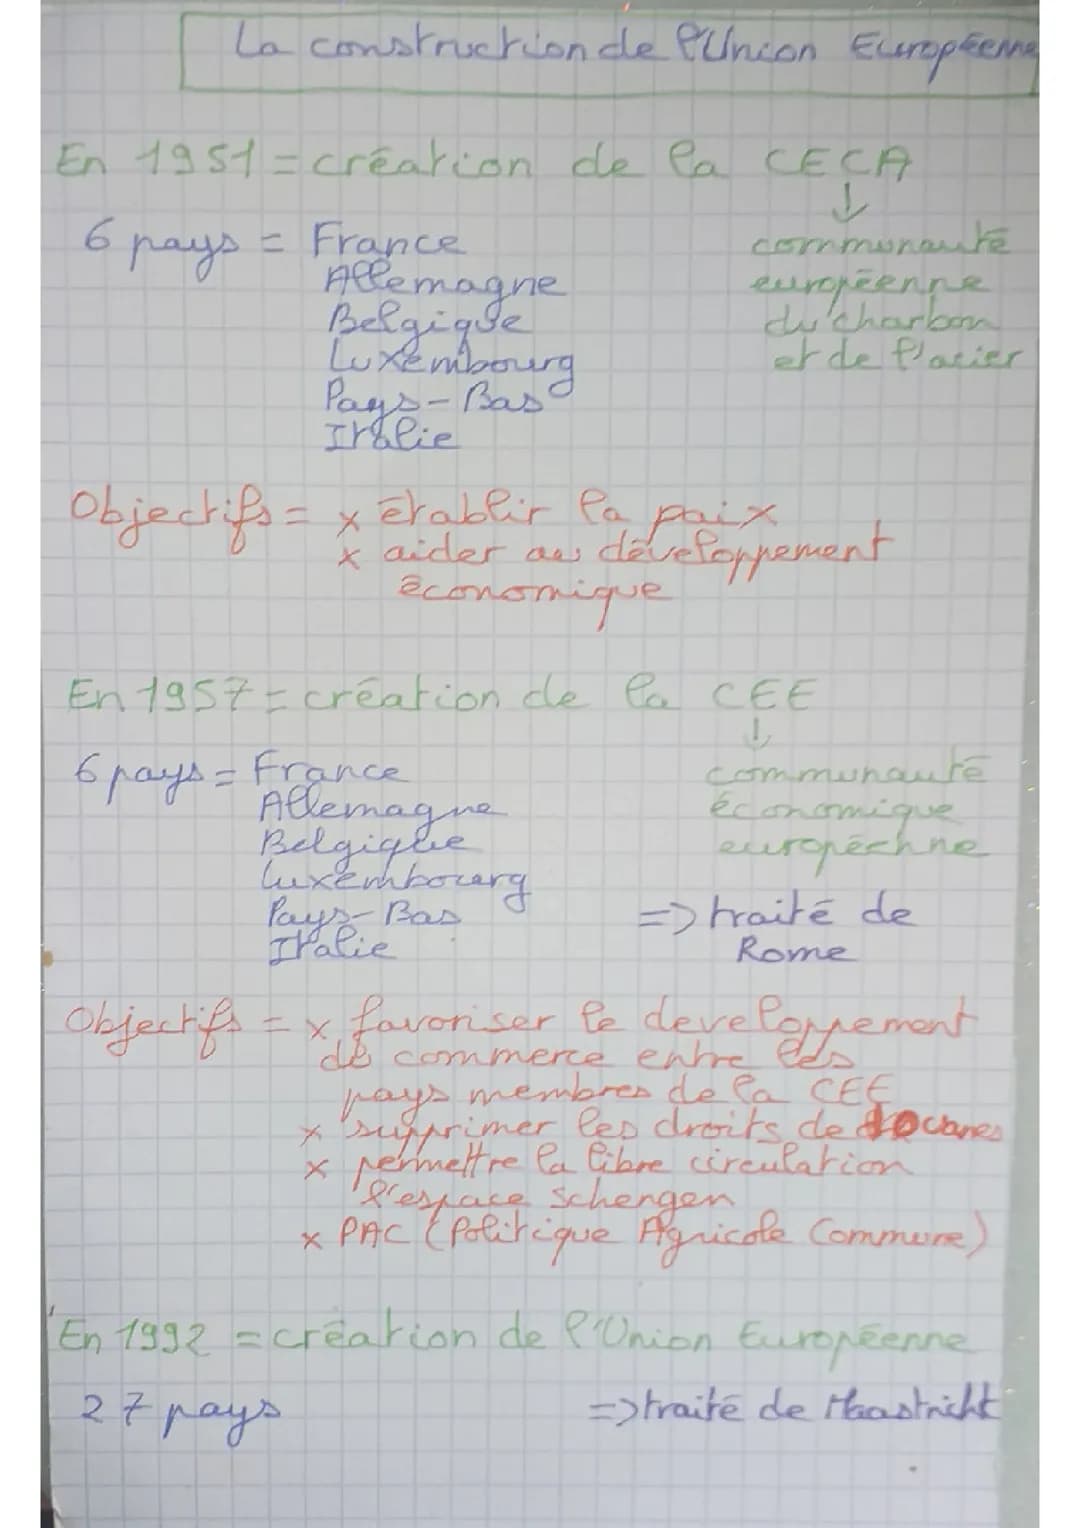 La construction de l'Union Européenne
En 1951 = création de la CECA
↓
6 pays = France
communauté
Allemagne
européenne
Belgique
du charbon
Luxembourg
et de l'acier
Pays-Bas
Italie
Objectifs = x établir la paix
x aider au développement
économique
En 1957 = création de la CEE
↓
6 pays = France
communauté
Allemagne
économique
Belgique
européenne
Luxembourg
Pays-Bas
=> traité de
Italie
Rome
Objectifs = x favoriser le developpement
de commerce entre les
pays membres de la CEE
x supprimer les droits de douanes
x permettre la libre circulation
l'espace Schengen
x PAC (Politique Agricole Commune)
En 1992 = création de l'Union Européenne
27 pays => traité de Maastricht